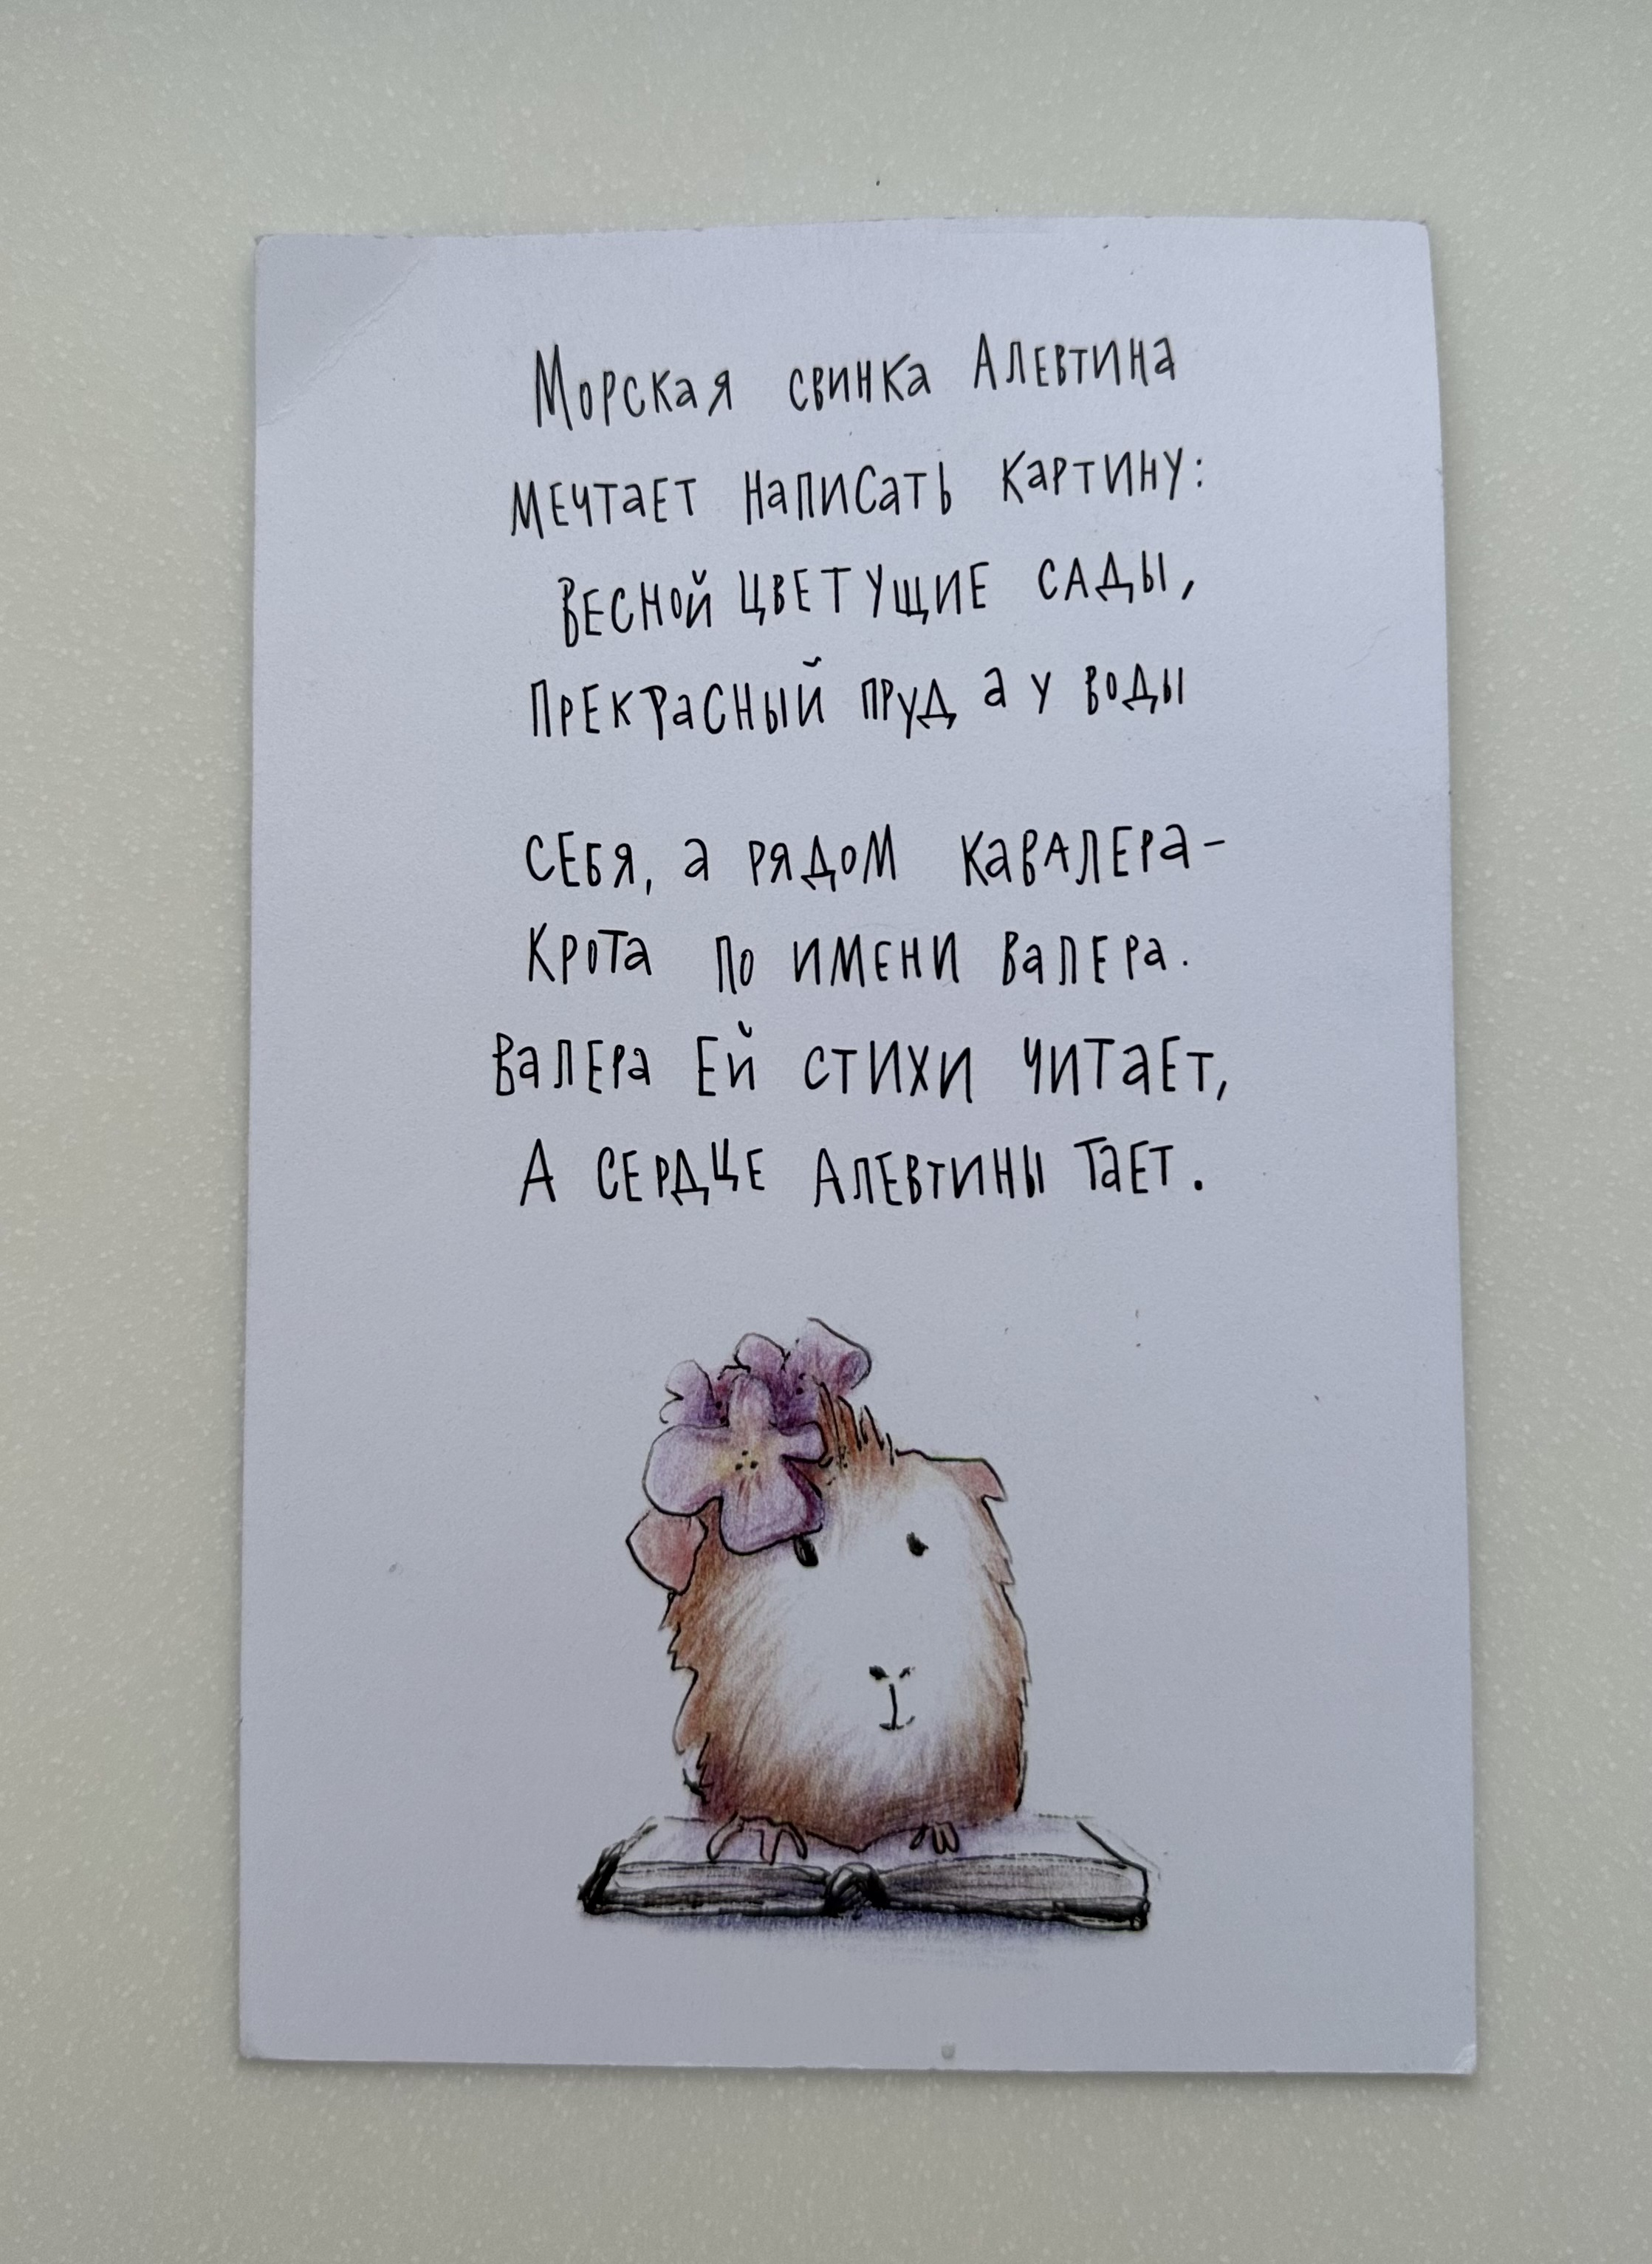 Морская свинка Алевтина
мечтает написать картину:
весной цветущие сады,
прекрасный пруд а у воды
себя, а рядом кавалера-
крота по имени Валера.
Валера ей стихи читает,
А сердце Алевтины тает.